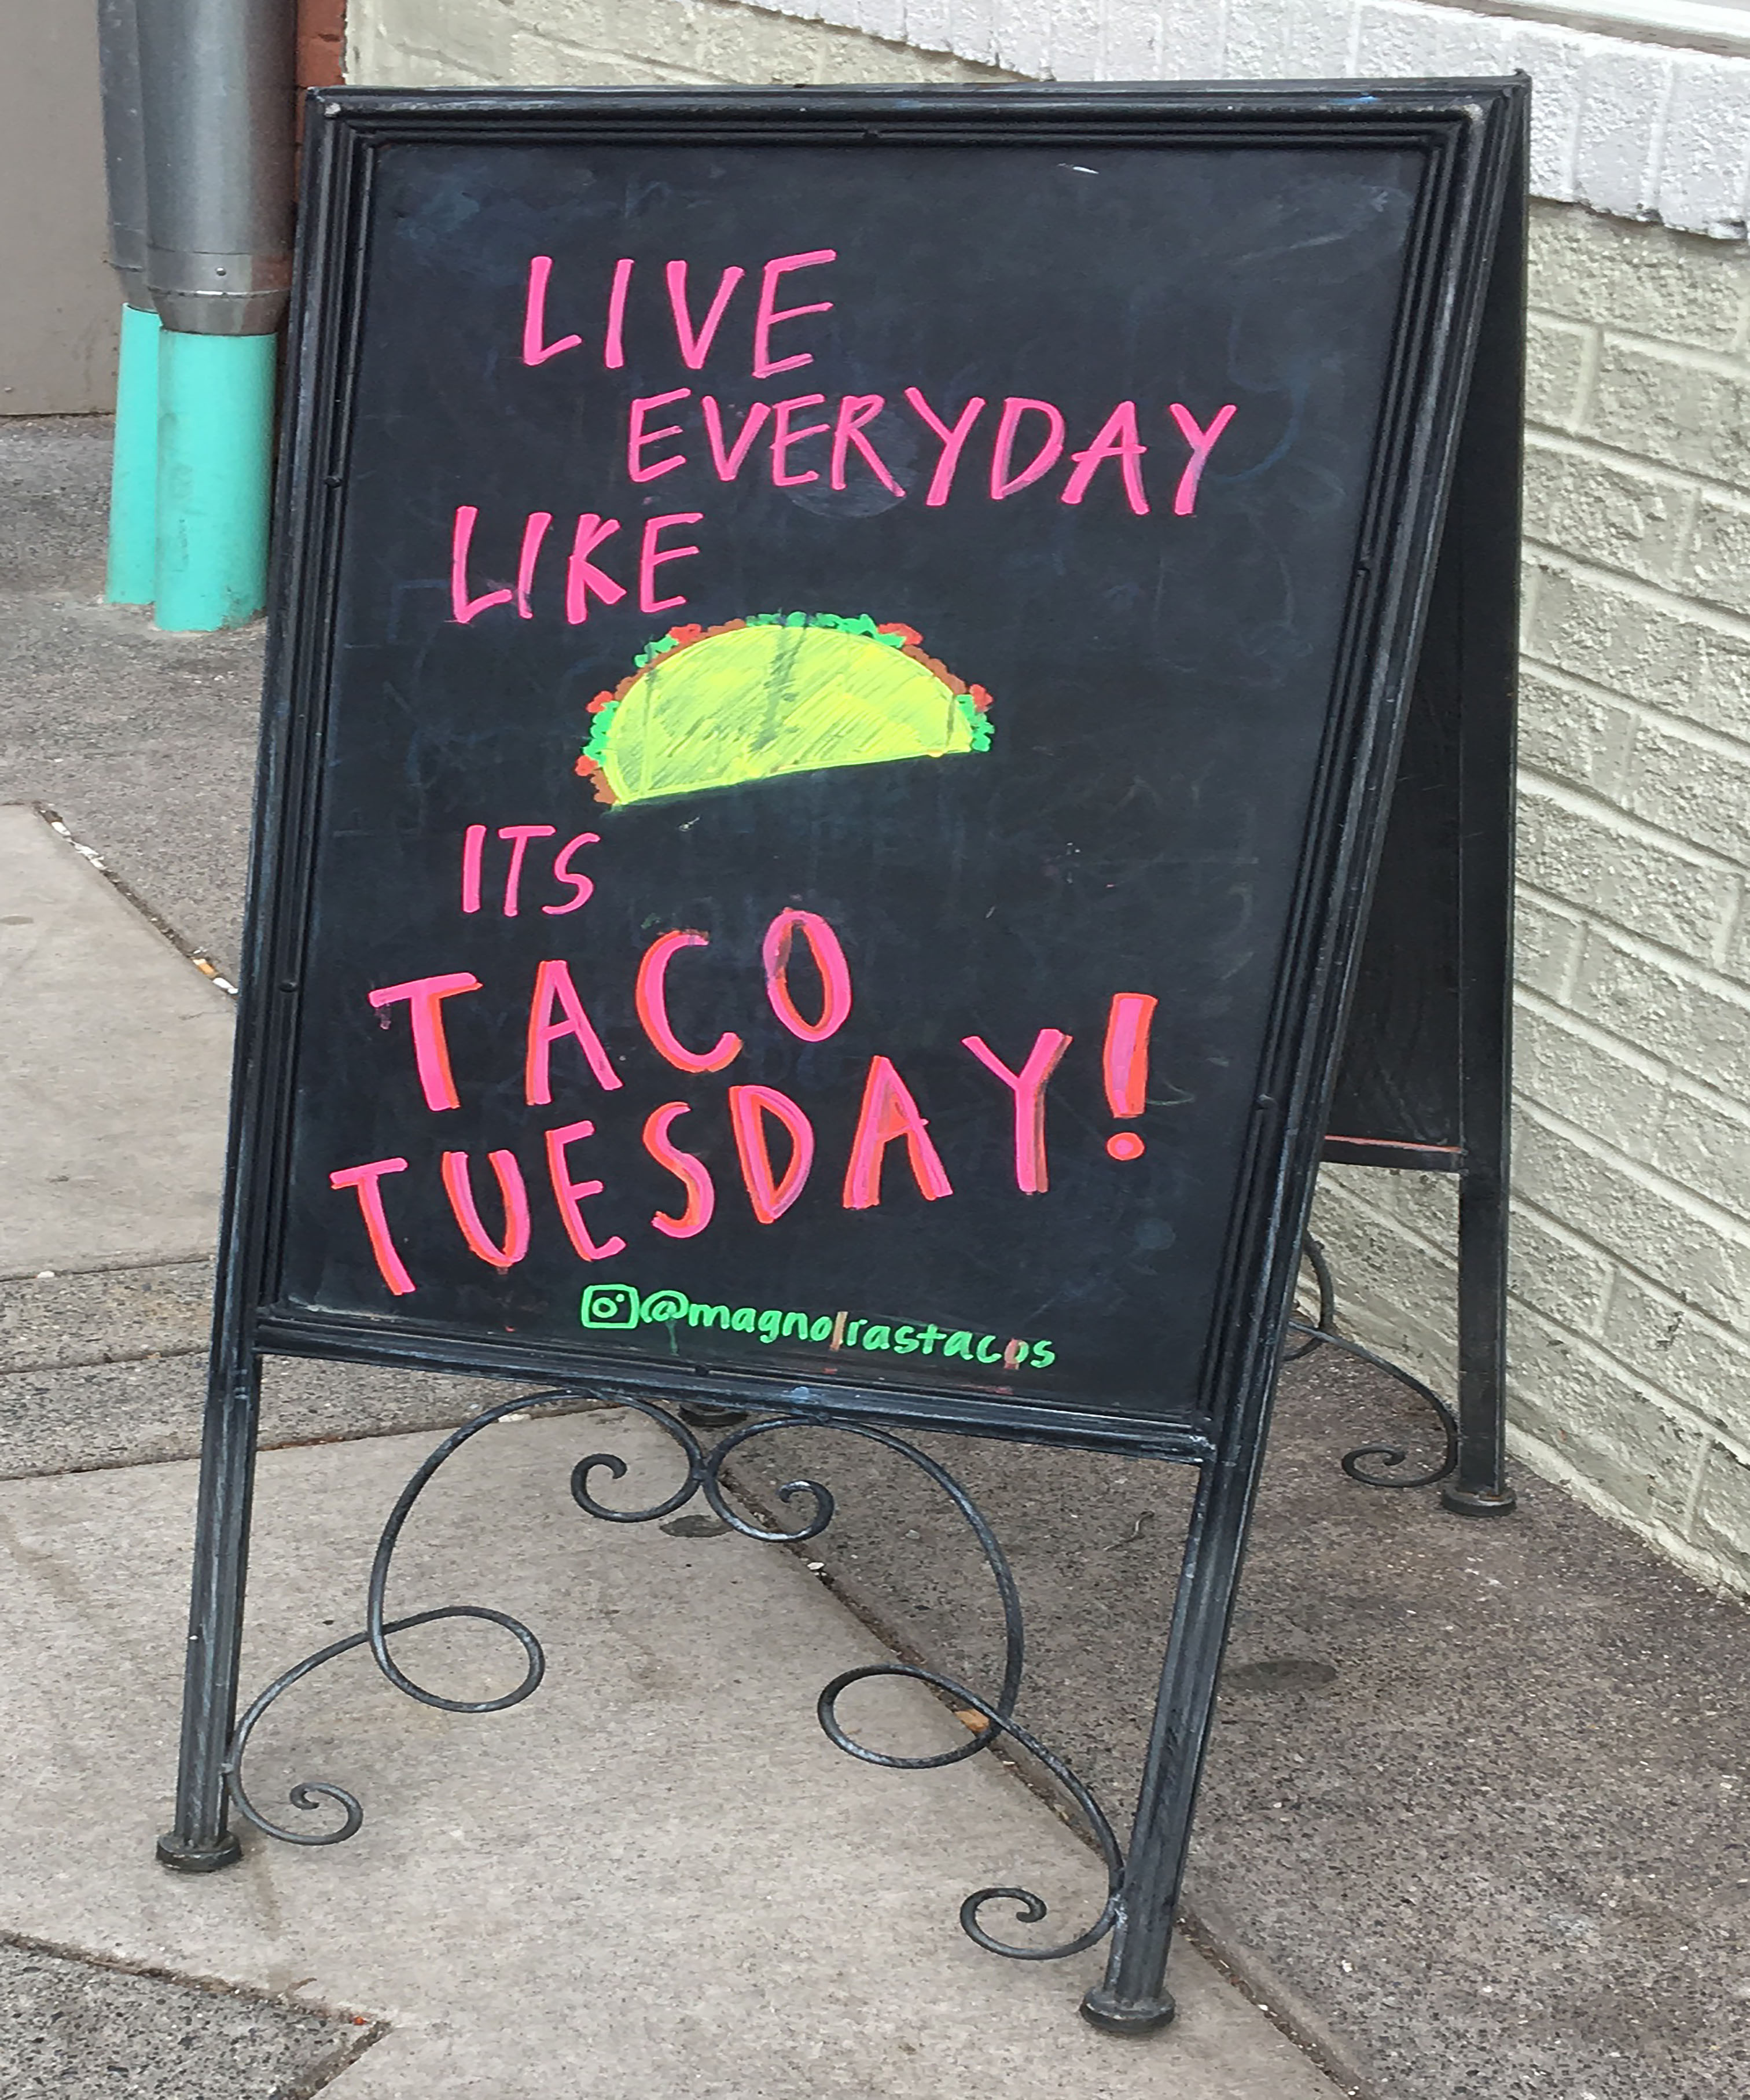 LIVE
EVERYDAY
LIKE
ITS
TACO
TUESDAY!
@magnolrastacos